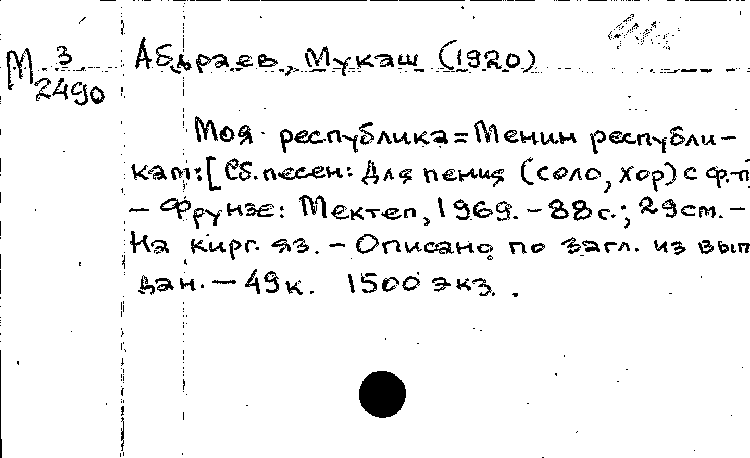 М 3
2490
Абдраев, Мукаш (1920)
Моя республика = Менин республи-
кам: [Сб. песен: Для пения (соло, хор) с ф.-п
- Фрунзе: Мектеп, 1969. - 88 с.; 29 см. -
На кирг. яз. - Описано по загл. из вып
дан. - 49 к. 1500 экз.